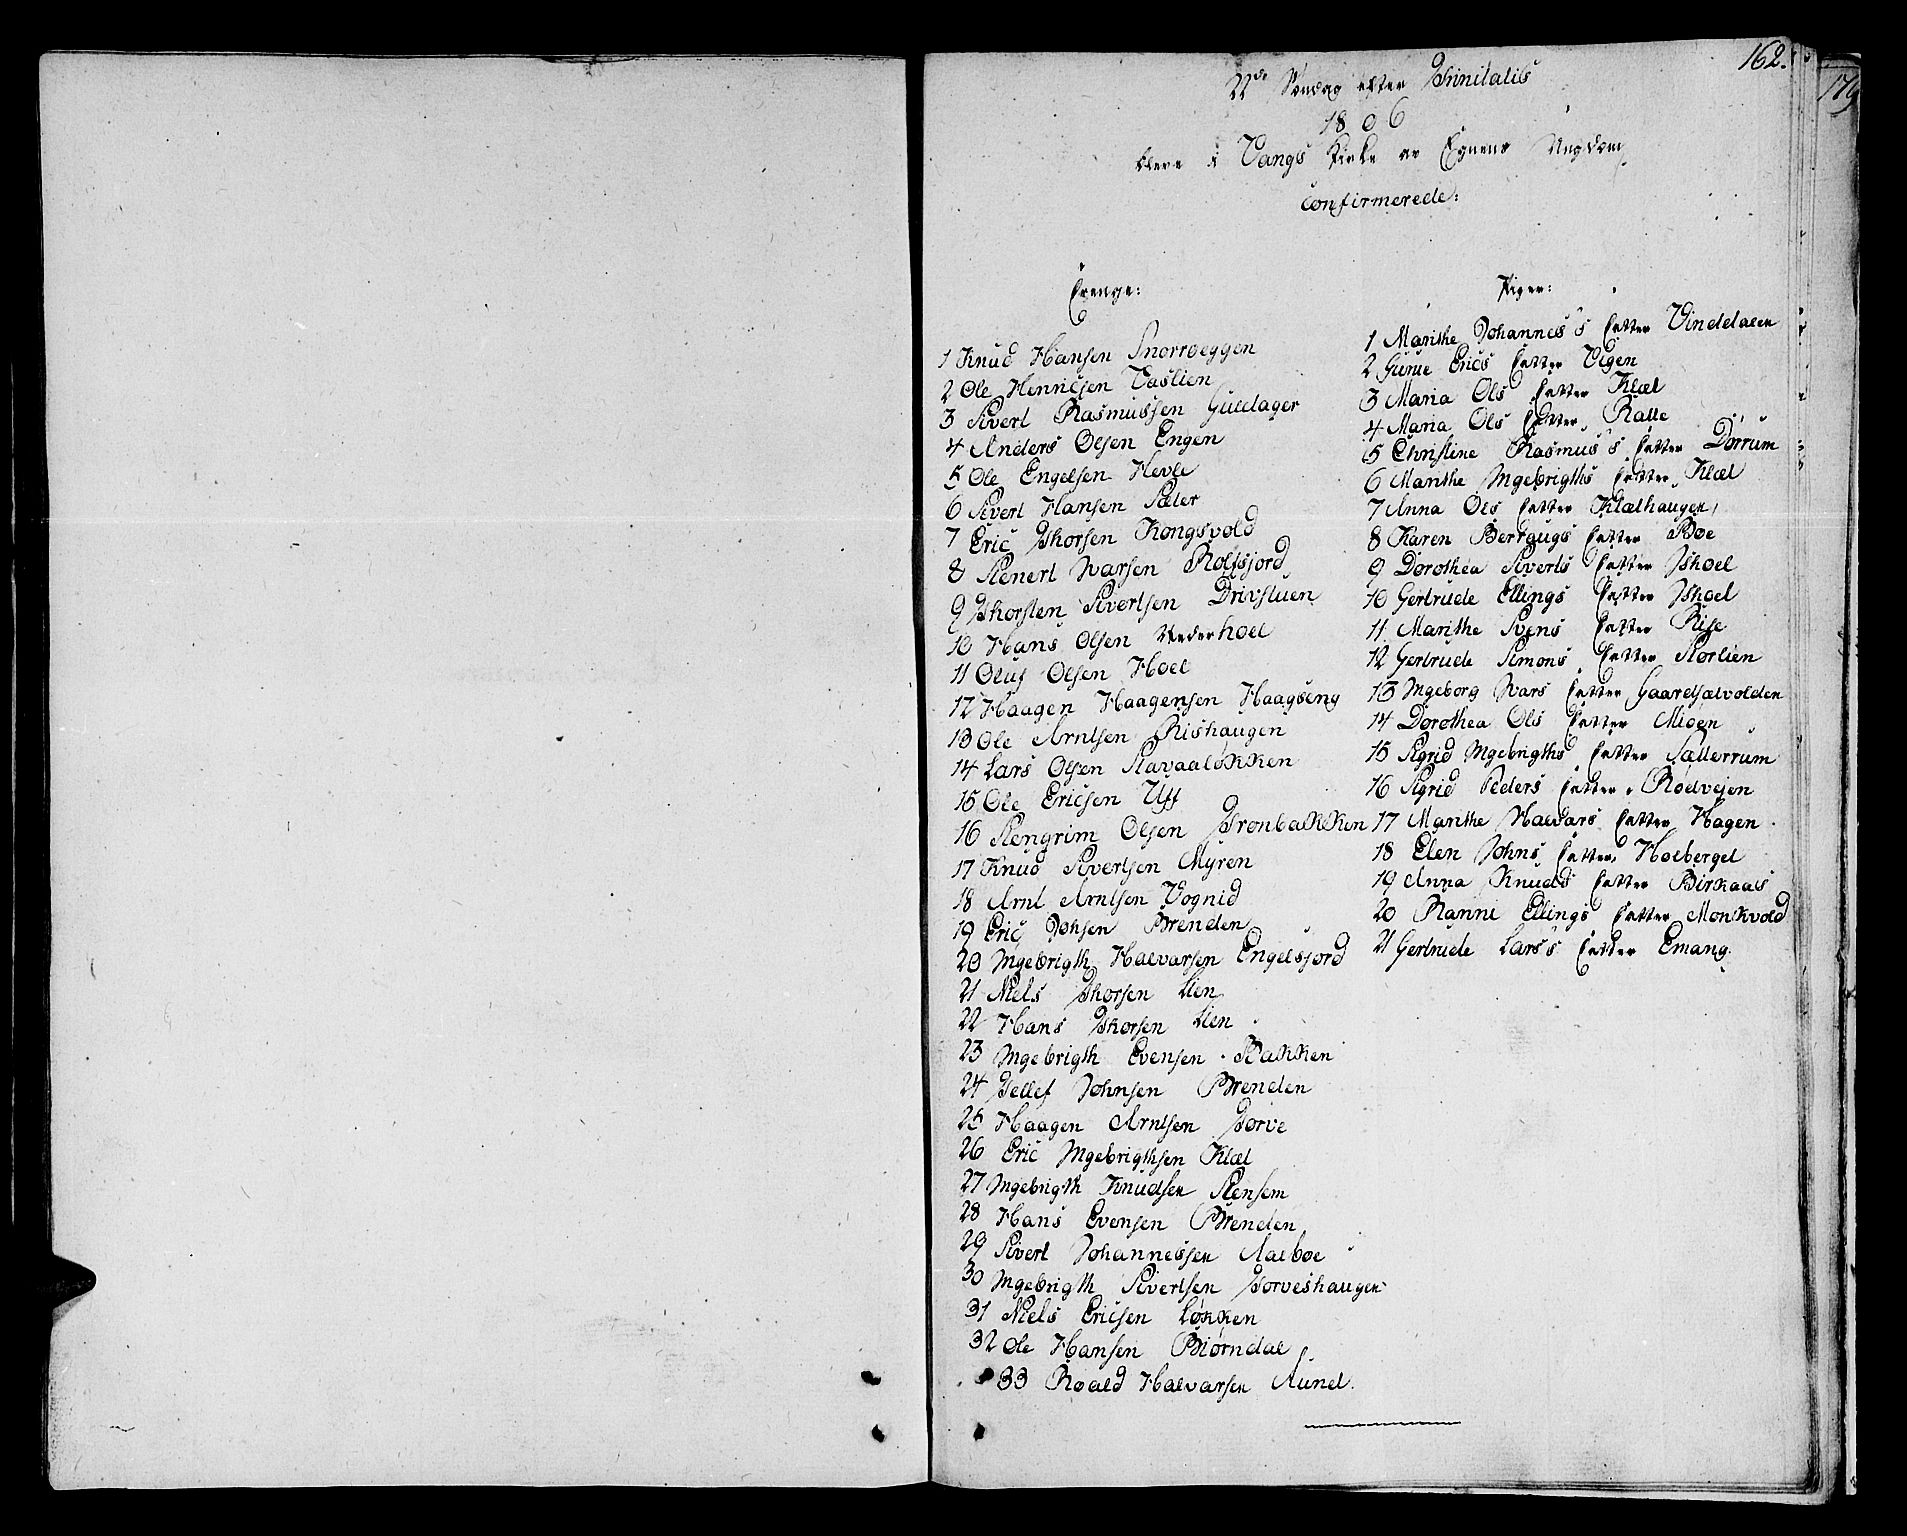 162.
179
22de Søndag efter Trinitatis
1806
bleve i Vangs Kirke av Egnens Ungdom
confirmerede:
Drenge:
1 Knud Hansen Snorroeggen
2 Ole Henricsen Vaslien
3 Sivert Rasmussen Guldager
4 Anders Olsen Engen
5 Ole Engelsen Hevle
6 Sivert Hansen Sæter
7 Eric Thorsen Kongsvold
8 Stenert Ivarsen Rolfsjord
9 Thorsten Sivertsen Drivstuen
10 Hans Olsen Nederhoel
11 Oluf Olsen Hoel
12 Haagen Haagensen Haagseng
13 Ole Arntsen Rishaugen
14 Lars Olsen Stavaaløkken
15 Ole Ericsen Uff
16 Stengrim Olsen Tronbakken
17 Knud Sivertsen Myren
18 Arnt Arntsen Vognid
19 Eric Johsen Brenden
20 Ingebrigth Halvarsen Engelsjord
21 Niels Thorsen Lien
22 Hans Thorsen Lien
23 Ingebrigth Evensen Bakken
24 Tellef Johnsen Brenden
25 Haagen Arntsen Torve
26 Eric Ingebrigthsen Klæt
27 Ingebrigth Knudsen Stensem
28 Hans Evensen Brenden
29 Sivert Johannessen Aalboe
30 Ingebrigth Sivertsen Torveshaugen
31 Niels Ericsen Løkken
32 Ole Hansen Biørndal
33 Roald Halvarsen Aune
Piger:
1 Marithe Johanness's Datter Vinddalen
2 Gurue Erics Datter Vigen
3 Maria Ols Datter Klæt
4 Maria Ols Datter Ralle
5 Christine Rasmus's Datter Dørrum
6 Marithe Ingebrigths Datter Klæt
7 Anna Ols Datter Klæthaugen
8 Karen Berraugs Datter Boe
9 Dorothea Siverts Datter Ishoel
10 Gertrude Ellings Datter Ishoel
11 Marithe Svens Datter Rise
12 Gertrude Simons Datter Storlien
13 Ingeborg Ivars Datter Gaardsælvolden
14 Dorothea Ols Datter Mioen
15 Sigrid Ingebrigths Datter Sætterrum
16 Sigrid Peders Datter Rødvejen
17 Marithe Halvars Datter Hagen
18 Elen Johns Datter Hoelberget
19 Anna Knuds Datter Birkaas
20 Ranni Ellings Datter Monkvold
21 Gertrude Lars's Datter Emang